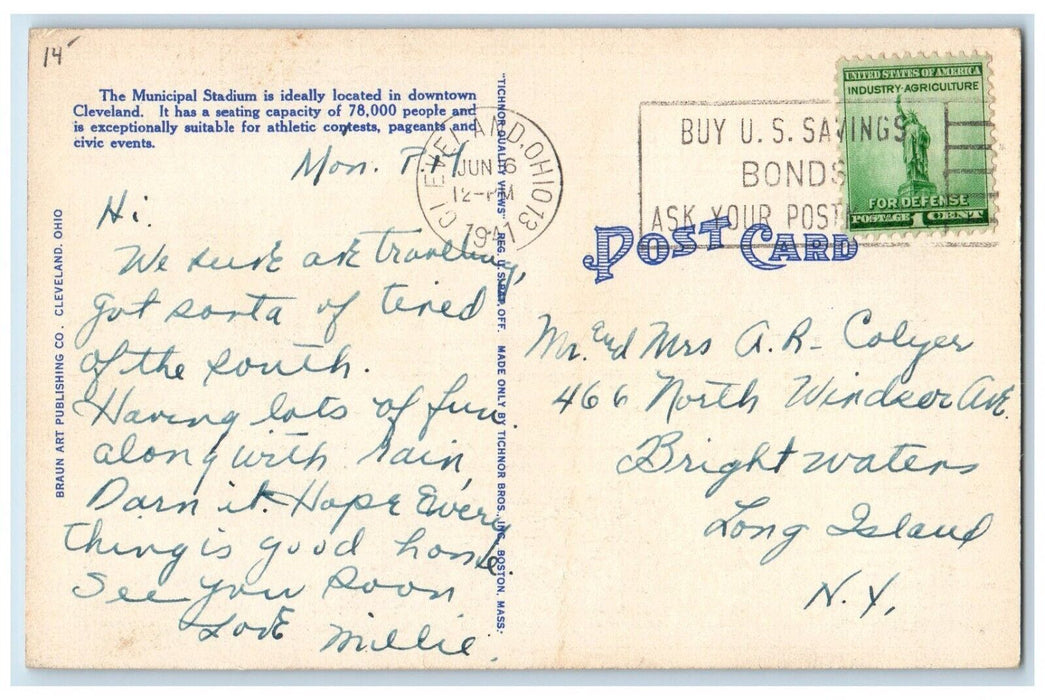 14
The Municipal Stadium is ideally located in downtown
Cleveland. It has a seating capacity of 78,000 people and
is exceptionally suitable for athletic contests, pageants and
civic events.
Mon.
Hi.
We sure are traveling,
got sorta of tired
of the south.
Having lots of fun
along with rain,
Darn it. Hope Every
thing is good home.
See you soon
Love
Millie.
BRAUN ART PUBLISHING CO. CLEVELAND, OHIO
"TICHNOR QUALITY VIEWS" REG. U. S. PAT. OFF. MADE ONLY BY TICHNOR BROS., INC., BOSTON, MASS.
CLEVELAND, OHIO 13
JUN 16
12-PM
1941
BUY U. S. SAVINGS
BONDS
ASK YOUR POST
UNITED STATES OF AMERICA
INDUSTRY-AGRICULTURE
FOR DEFENSE
POSTAGE 1 CENT
POST CARD
Mr. End Mrs A. R- Colyer
466 North Windsor Ave.
Brightwaters
Long Island
N.Y.